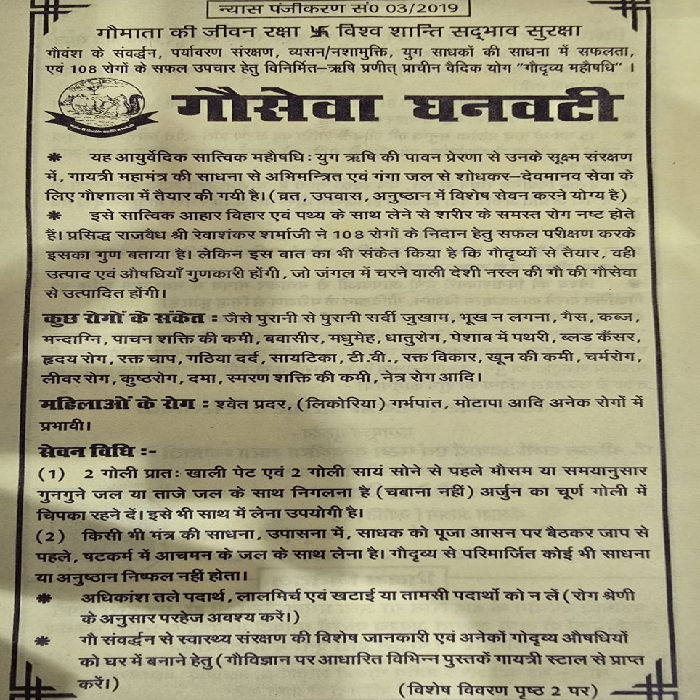 न्यास पंजीकरण सं0 03/2019
गौमाता की जीवन रक्षा 卐 विश्व शान्ति सद्भाव सुरक्षा
गौवंश के संवर्द्धन, पर्यावरण संरक्षण, व्यसन/नशामुक्ति, युग साधकों की साधना में सफलता,
एवं 108 रोगों के सफल उपचार हेतु विनिर्मित–ऋषि प्रणीत् प्राचीन वैदिक योग "गौदृव्य महौषधि" ।
गौसेवा घनवटी
* यह आयुर्वेदिक सात्विक महौषधि: युग ऋषि की पावन प्रेरणा से उनके सूक्ष्म संरक्षण
में, गायत्री महामंत्र की साधना से अभिमन्त्रित एवं गंगा जल से शोधकर–देवमानव सेवा के
लिए गौशाला में तैयार की गयी है। (व्रत, उपवास, अनुष्ठान में विशेष सेवन करने योग्य है)
* इसे सात्विक आहार विहार एवं पथ्य के साथ लेने से शरीर के समस्त रोग नष्ट होते
हैं। प्रसिद्ध राजवैध श्री रेवाशंकर शर्माजी ने 108 रोगों के निदान हेतु सफल परीक्षण करके
इसका गुण बताया है। लेकिन इस बात का भी संकेत किया है कि गौदृष्यों से तैयार, वही
उत्पाद एवं औषधियाँ गुणकारी होंगी, जो जंगल में चरने वाली देशी नस्ल की गौ की गौसेवा
से उत्पादित होंगी।
कुछ रोगों के संकेत : जैसे पुरानी से पुरानी सर्दी जुखाम, भूख न लगना, गैस, कब्ज,
मन्दाग्नि, पाचन शक्ति की कमी, बवासीर, मधुमेह, धातुरोग, पेशाब में पथरी, ब्लड कैंसर,
हृदय रोग, रक्त चाप, गठिया दर्द, सायटिका, टी.वी., रक्त विकार, खून की कमी, चर्मरोग,
लीवर रोग, कुष्ठरोग, दमा, स्मरण शक्ति की कमी, नेत्र रोग आदि।
महिलाओं के रोग : श्वेत प्रदर, (लिकोरिया) गर्भपात, मोटापा आदि अनेक रोगों में
प्रभावी।
सेवन विधि :-
(1) 2 गोली प्रातः खाली पेट एवं 2 गोली सायं सोने से पहले मौसम या समयानुसार
गुनगुने जल या ताजे जल के साथ निगलना है (चबाना नहीं) अर्जुन का चूर्ण गोली में
चिपका रहने दें। इसे भी साथ में लेना उपयोगी है।
(2) किसी भी मंत्र की साधना, उपासना में, साधक को पूजा आसन पर बैठकर जाप से
पहले, षटकर्म में आचमन के जल के साथ लेना है। गौदृव्य से परिमार्जित कोई भी साधना
या अनुष्ठान निष्फल नहीं होता।
* अधिकांश तले पदार्थ, लालमिर्च एवं खटाई या तामसी पदार्थो को न लें (रोग श्रेणी
के अनुसार परहेज अवश्य करें।)
* गौ संवर्द्धन से स्वास्थ्य संरक्षण की विशेष जानकारी एवं अनेकों गोदृव्य औषधियों
को घर में बनाने हेतु (गौविज्ञान पर आधारित विभिन्न पुस्तकें गायत्री स्टाल से प्राप्त
करें।)
(विशेष विवरण पृष्ठ 2 पर)